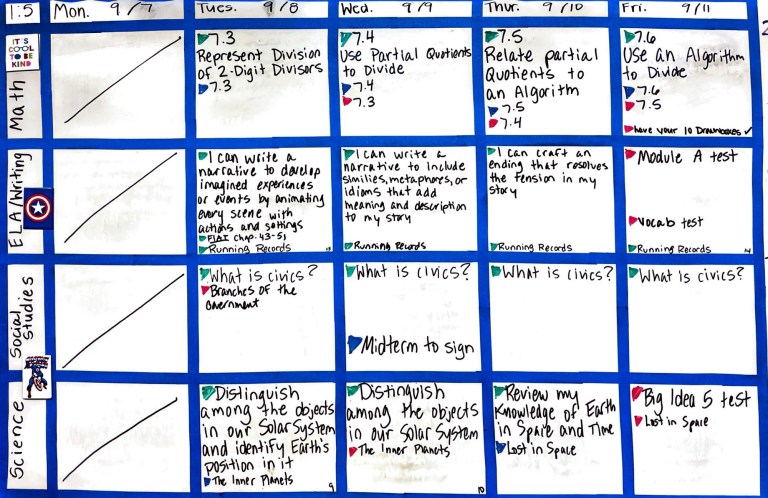 1:5
Mon. 9/7
Tues. 9/8
Wed. 9/9
Thur. 9/10
Fri. 9/11
IT'S
COOL
TO BE
KIND
Math
7.3
Represent Division
of 2-Digit Divisors
7.3
7.4
Use Partial Quotients
to Divide
7.4
7.3
7.5
Relate partial
Quotients to
an Algorithm
7.5
7.4
7.6
Use an Algorithm
to Divide
7.6
7.5
have your 10 Dreamboxes ✓
ELA/Writing
I can write a
narrative to develop
imagined experiences
or events by animating
every scene with
actions and settings
FIAT Chap. 43-51
Running Records
I can write a
narrative to include
similies, metaphores, or
idioms that add
meaning and description
to my story
Running Records
I can craft an
ending that resolves
the tension in my
story
Running Records
Module A test
Vocab test
Running Records
Social
Studies
What is civics?
Branches of the
Government
What is civics?
Midterm to sign
What is civics?
What is civics?
Science
Distinguish
among the objects
in our Solar System
and identify Earth's
position in it
The Inner Planets
9
Distinguish
among the objects
in our Solar System
The Inner Planets
10
Review my
Knowledge of Earth
in Space and Time
Lost in Space
Big Idea 5 test
Lost in Space